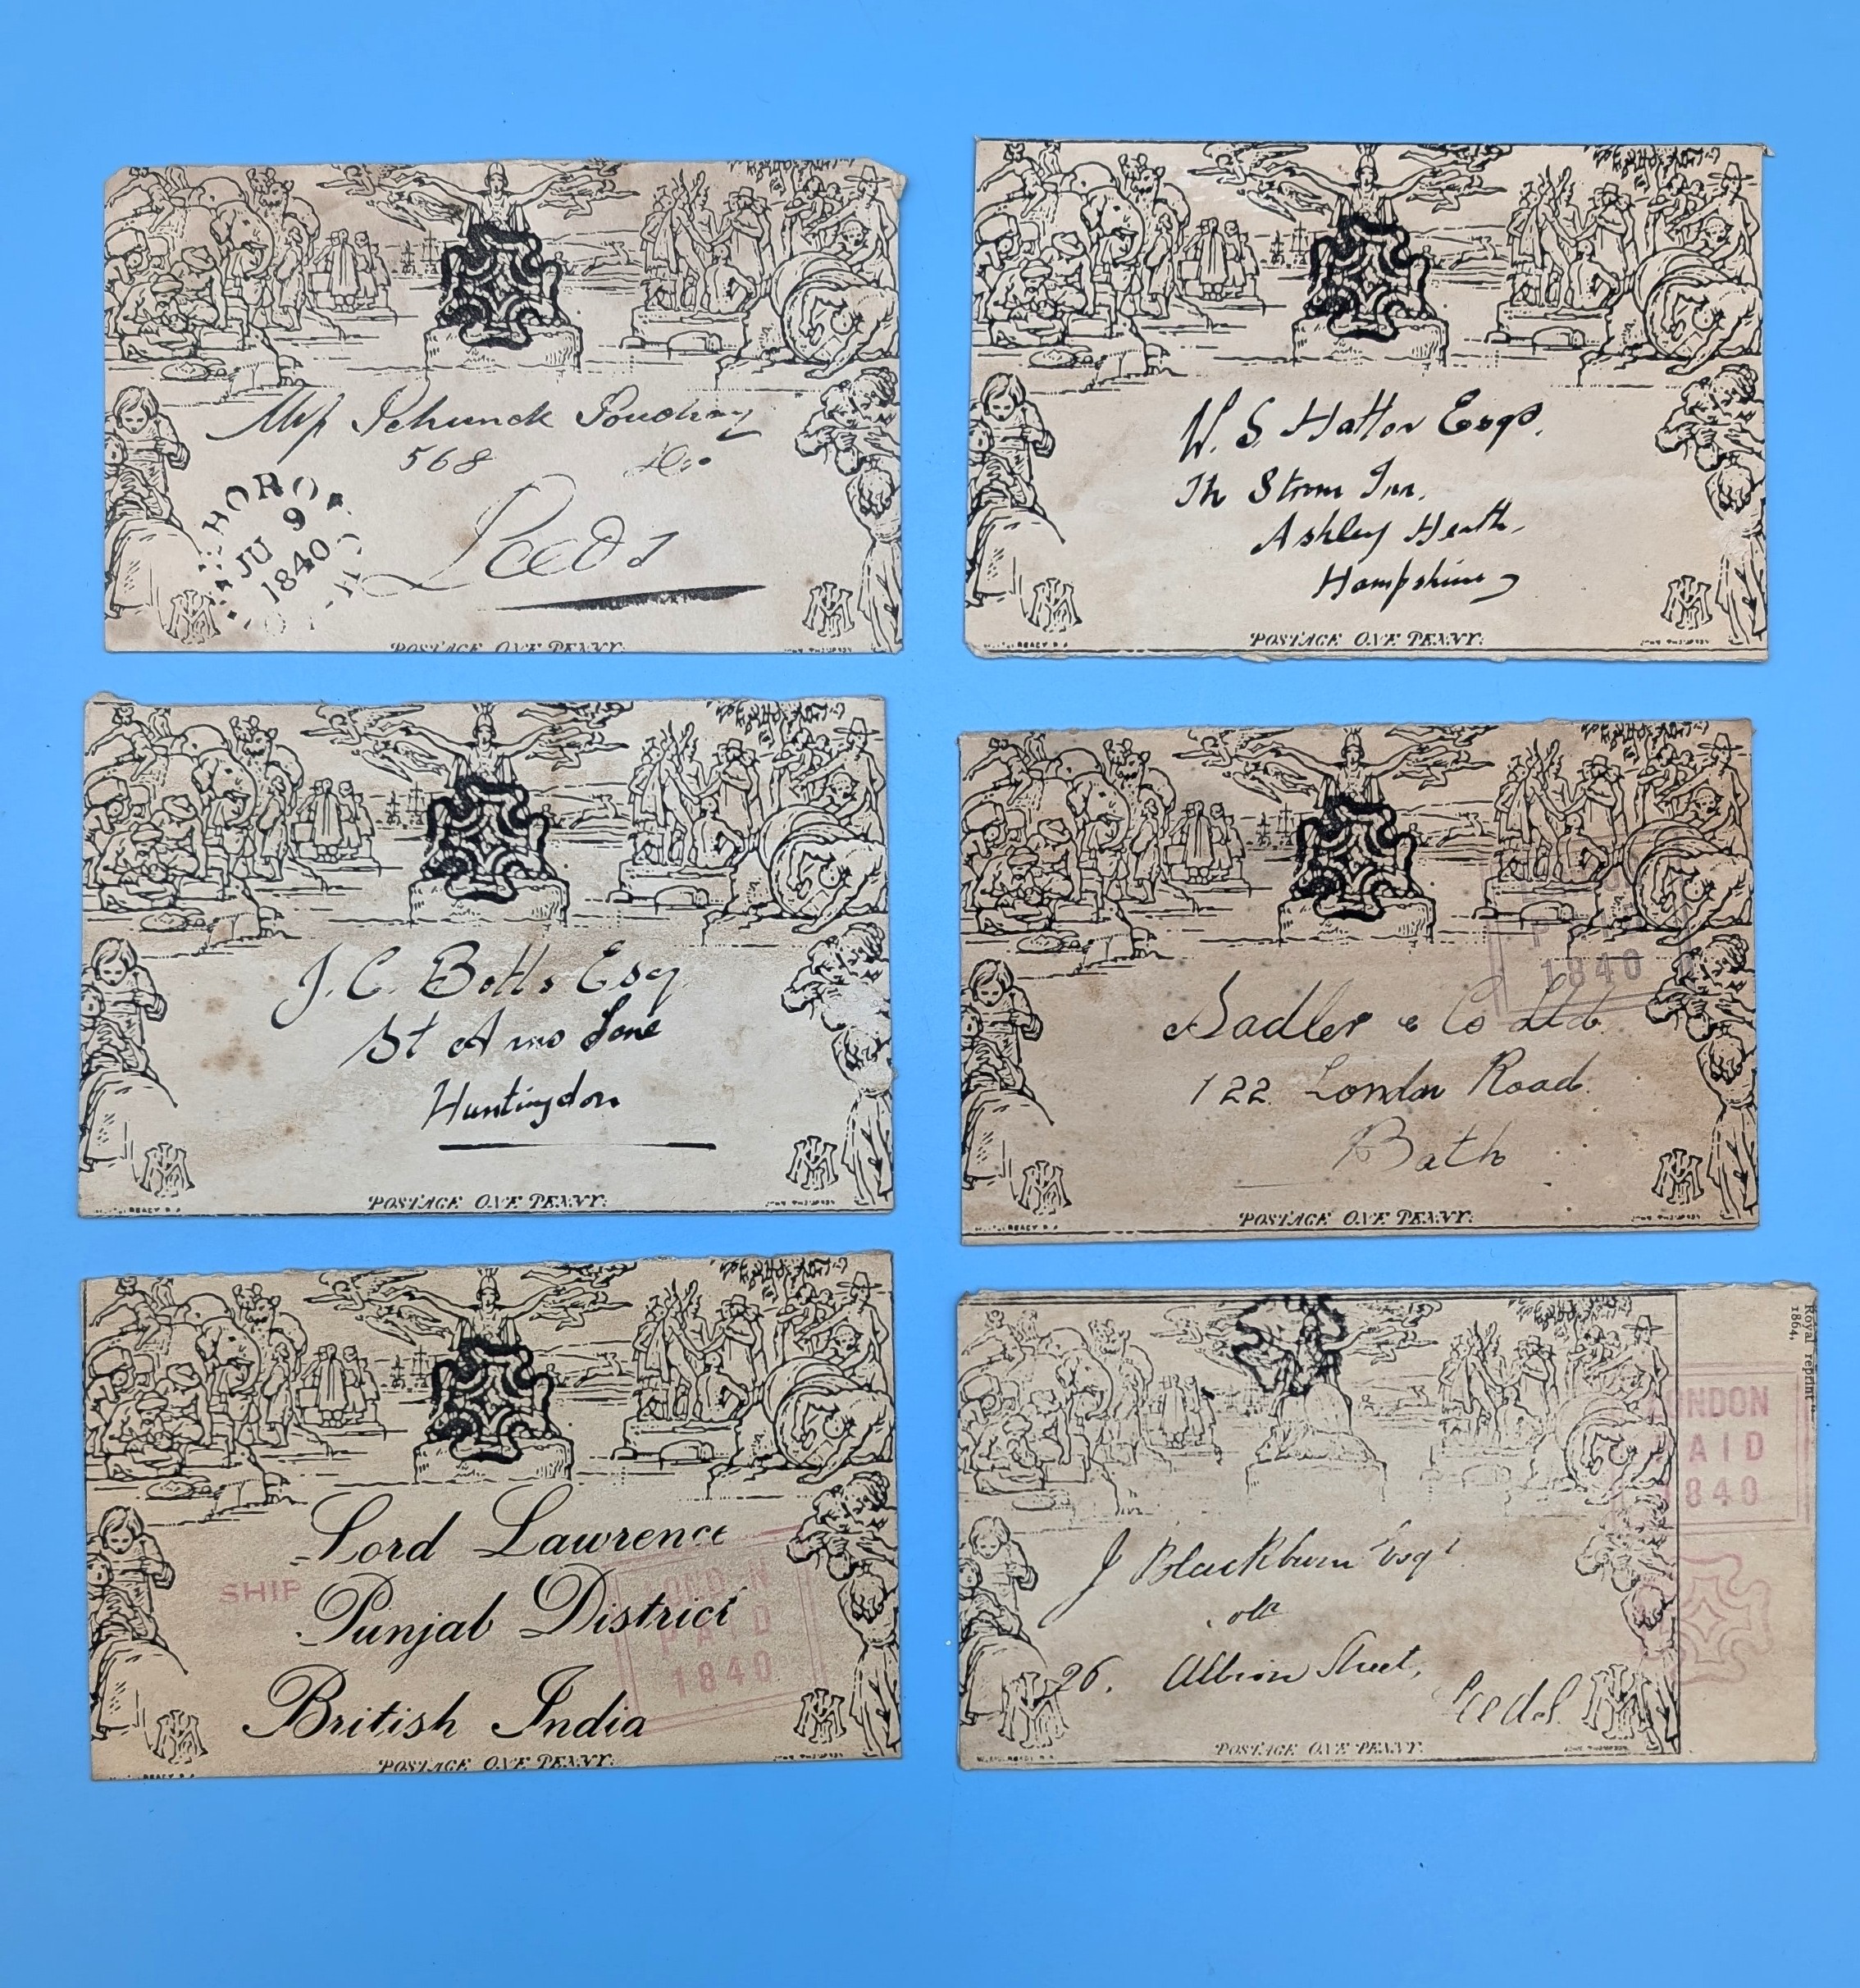 568
Leeds
HORO
JU 9
1840
POSTAGE ONE PENNY.
W. S. Hatton Esqr.
Ashley Heath,
Hampshire
POSTAGE ONE PENNY.
J. C. Botts Esq
Huntingdon
POSTAGE ONE PENNY.
1840
Sadler & Co Ltd.
122. London Road.
Bath
POSTAGE ONE PENNY.
Lord Lawrence
SHIP
Punjab District
British India
PAID
1840
POSTAGE ONE PENNY.
Royal reprint
1864,
ONDON
AID
1840
J Blackburn Esqr
26. Albion Street,
Leeds.
POSTAGE ONE PENNY.